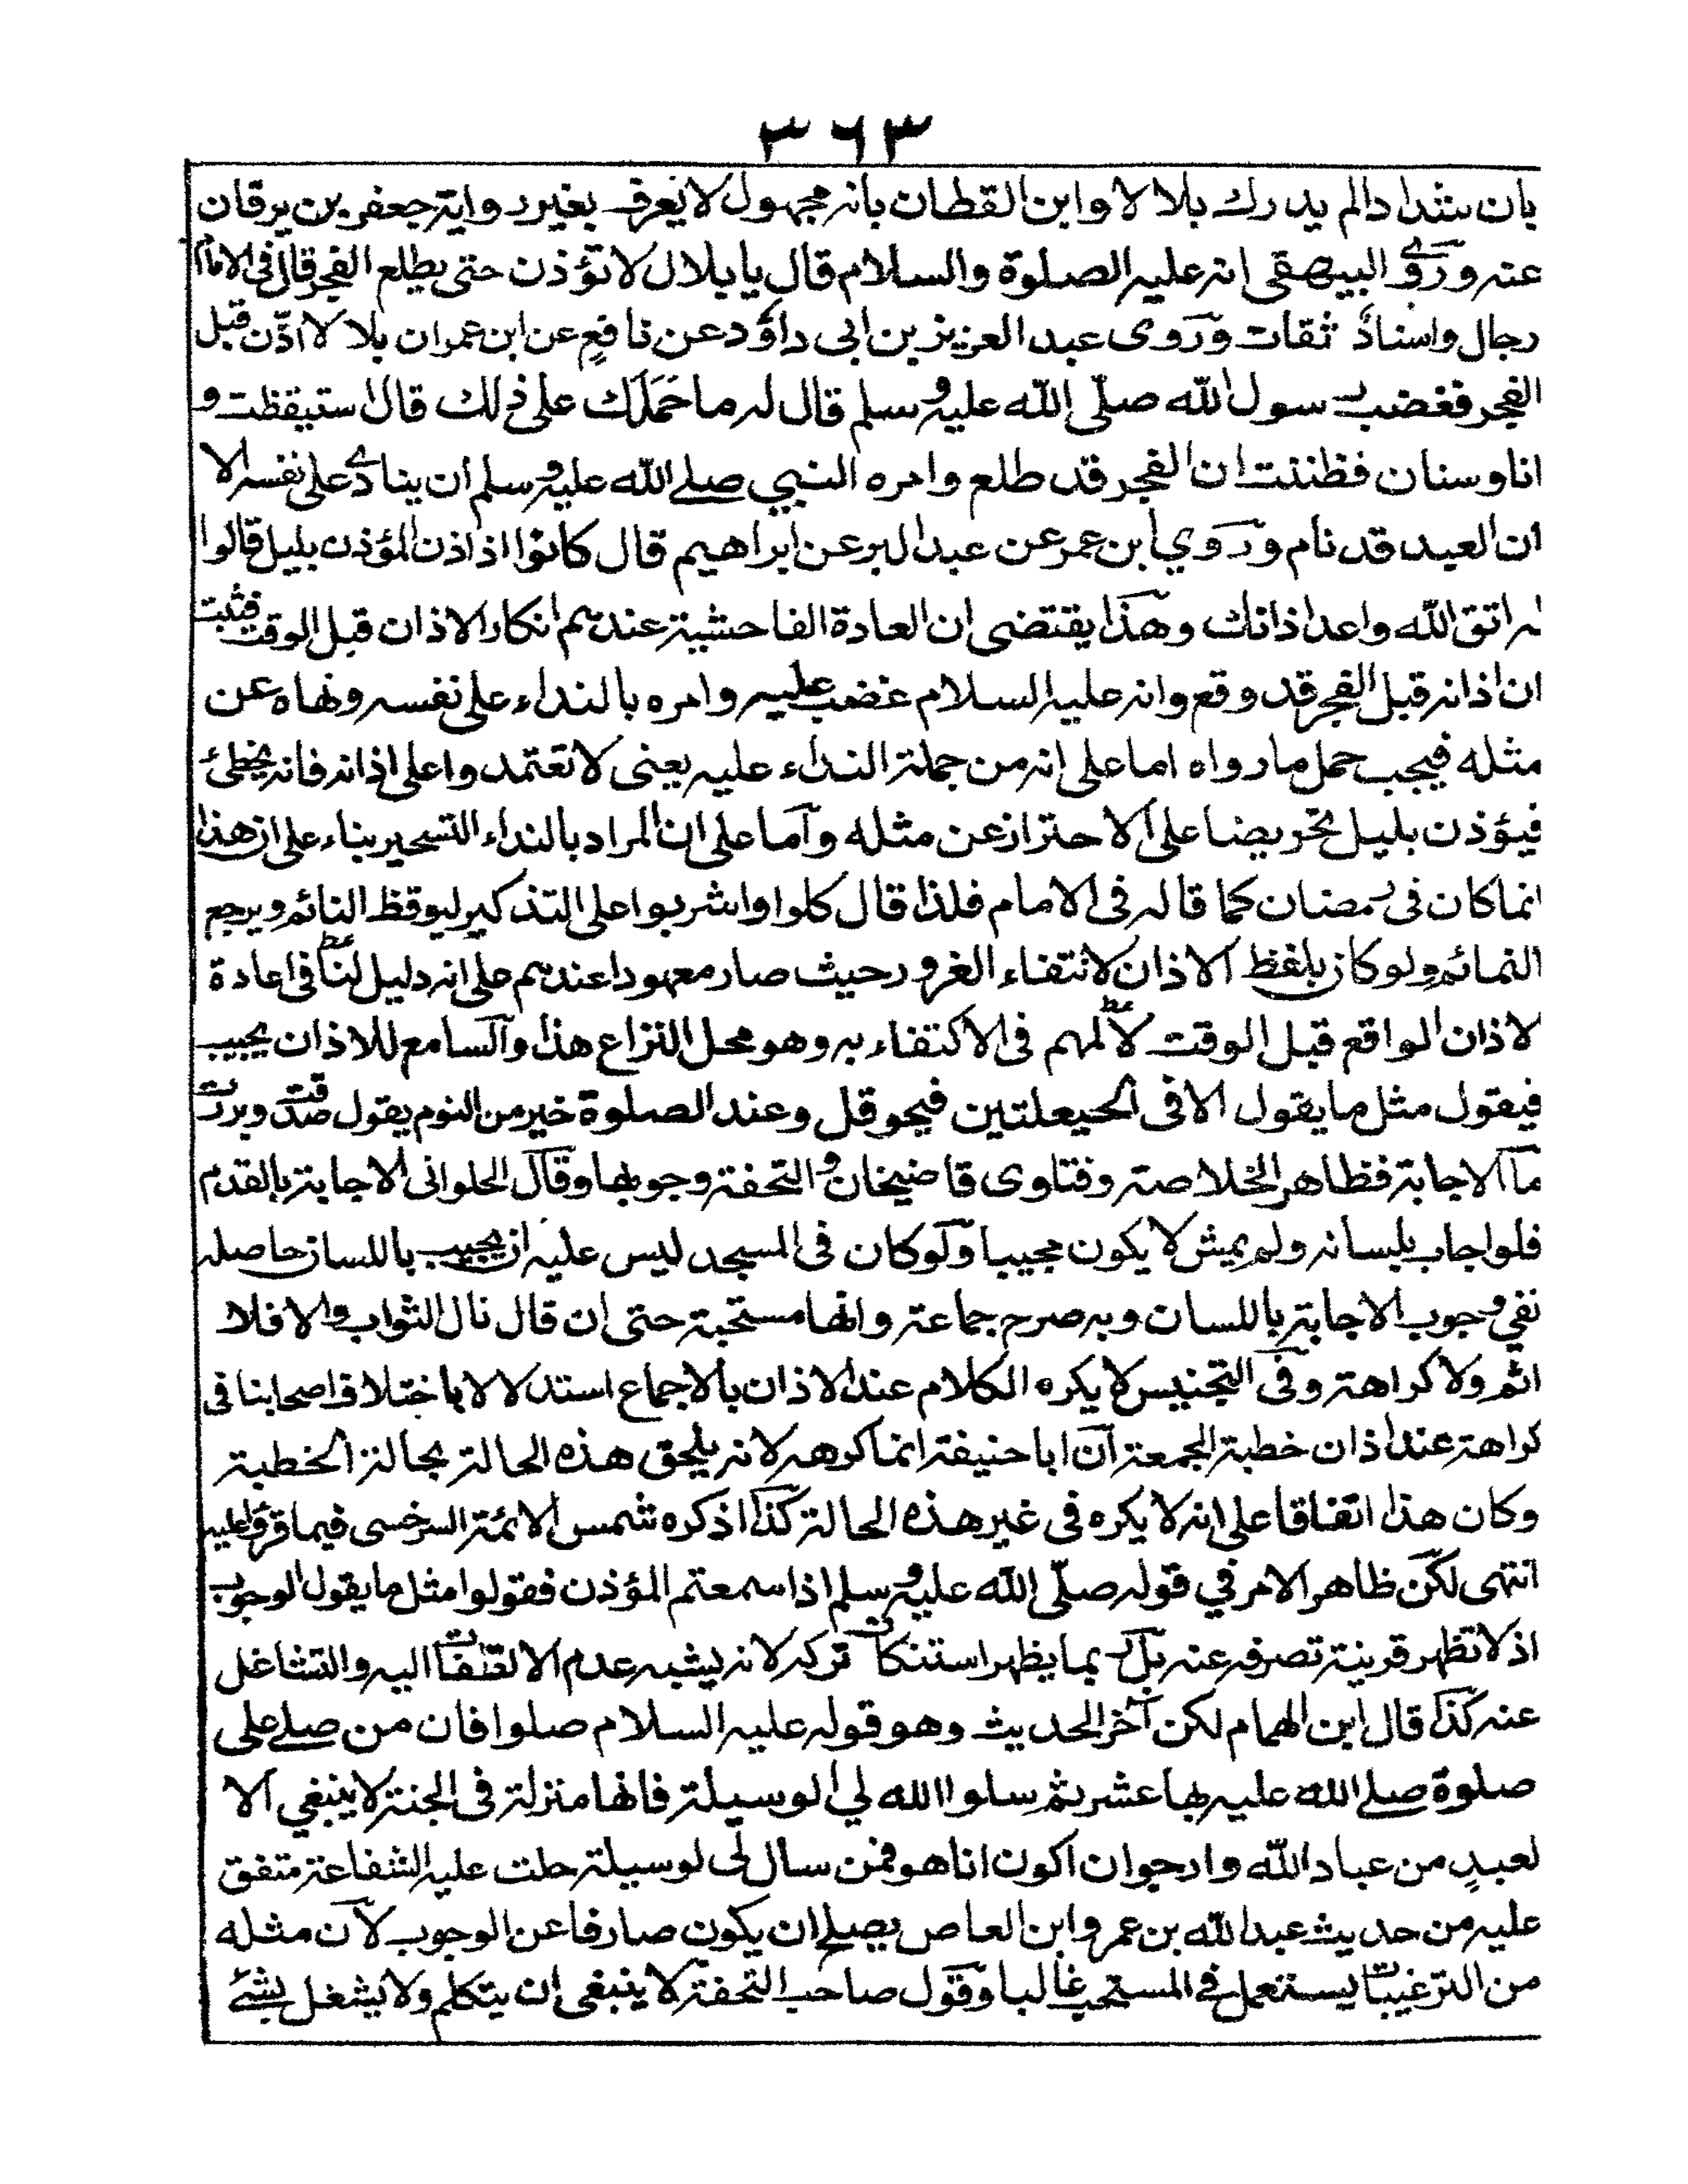 ٣٦٣
بان شدادا لم يدرك بلالا وابن القطان بانه مجهول لا يعرف بغير رواية جعفر بن برقان
عنه وروى البيهقى انه عليه الصلوة والسلام قال يا بلال لا تؤذن حتى يطلع الفجر قال فى الامام
رجال واسناده ثقات وروى عبد العزيز بن ابى داؤد عن نافع عن ابن عمر ان بلالا اذن قبل
الفجر فغضب رسول الله صلى الله عليه وسلم قال له ما حملك على ذلك قال استيقظت و
انا وسنان فظننت ان الفجر قد طلع وامره النبي صلے الله عليه وسلم ان ينادے على نفسه الا
ان العبد قد نام وروي ابن عمر عن عبد البر عن ابراهيم قال كانوا اذا اذن المؤذن بليل قالوا
له اتق الله واعد اذانك وهذا يقتضى ان العادة الفاحشية عندهم انكار الاذان قبل الوقت فثبت
ان اذانه قبل الفجر قد وقع وانه عليه السلام غضب عليه وامره بالنداء على نفسه ونهاه عن
مثله فيجب حمل ما رواه اما على انه من جملة النداء عليه يعنى لا تعتمدوا على اذانه فانه يخطئ
فيؤذن بليل تحريضا على الاحتراز عن مثله وآما على ان المراد بالنداء التسحير بناء على ان هذا
انما كان فى رمضان كما قاله فى الامام فلذا قال كلوا واشربوا على التذكير ليوقظ النائم ويرجع
النمائم ولو كان بلفظ الاذان لانتفاء الغرور حيث صار معهودا عندهم على انه دليل لنا فى اعادة
لاذان الواقع قبل الوقت لا لهم فى الاكتفاء به وهو محل النزاع هذا وآلسامع للاذان يجيب
فيقول مثل ما يقول الا فى الحيعلتين فيحوقل وعند الصلوة خير من النوم يقول صدقت وبررت
مآ الاجابة فظاهر الخلاصة وفتاوى قاضيخان والتحفة وجوبها وقال الحلوانى الاجابة بالقدم
فلو اجاب بلسانه ولم يمش لا يكون مجيبا ولو كان فى المسجد ليس عليه ان يجيب باللسان حاصله
نفي وجوب الاجابة باللسان وبه صرح جماعة وانها مستحبة حتى ان قال نال الثواب والا فلا
اثم ولا كراهة وفى التجنيس لا يكره الكلام عند الاذان بالاجماع استدلالا باختلاف اصحابنا فى
كراهة عند اذان خطبة الجمعة آن ابا حنيفة انما كرهه لانه يلحق هذه الحالة بحالة الخطبة
وكان هذا اتفاقا على انه لا يكره فى غير هذه الحالة كذا اذكره شمس الائمة السرخسى فيما قرؤا عليه
انتهى لكن ظاهر الامر في قوله صلى الله عليه وسلم اذا سمعتم المؤذن فقولوا مثل ما يقول الوجوب
اذ لا تظهر قرينة تصرفه عنه بل ربما يظهر استنكات تركه لانه يشبه عدم الالتفات اليه والتشاغل
عنه كذا قال ابن الهمام لكن آخر الحديث وهو قوله عليه السلام صلوا فان من صلے على
صلوة صلے الله عليه بها عشر ثم سلوا الله لي الوسيلة فانها منزلة فى الجنة لا ينبغي الا
لعبد من عباد الله وارجو ان اكون انا هو فمن سال لى لوسيلة حلت عليه الشفاعة متفق
عليه من حديث عبد الله بن عمر وابن العاص يصلح ان يكون صارفا عن الوجوب لآن مثله
من الترغيبات يستعمل فى المستحب غالبا وقول صاحب التحفة لا ينبغى ان يتكلم ولا يشغل بشئ